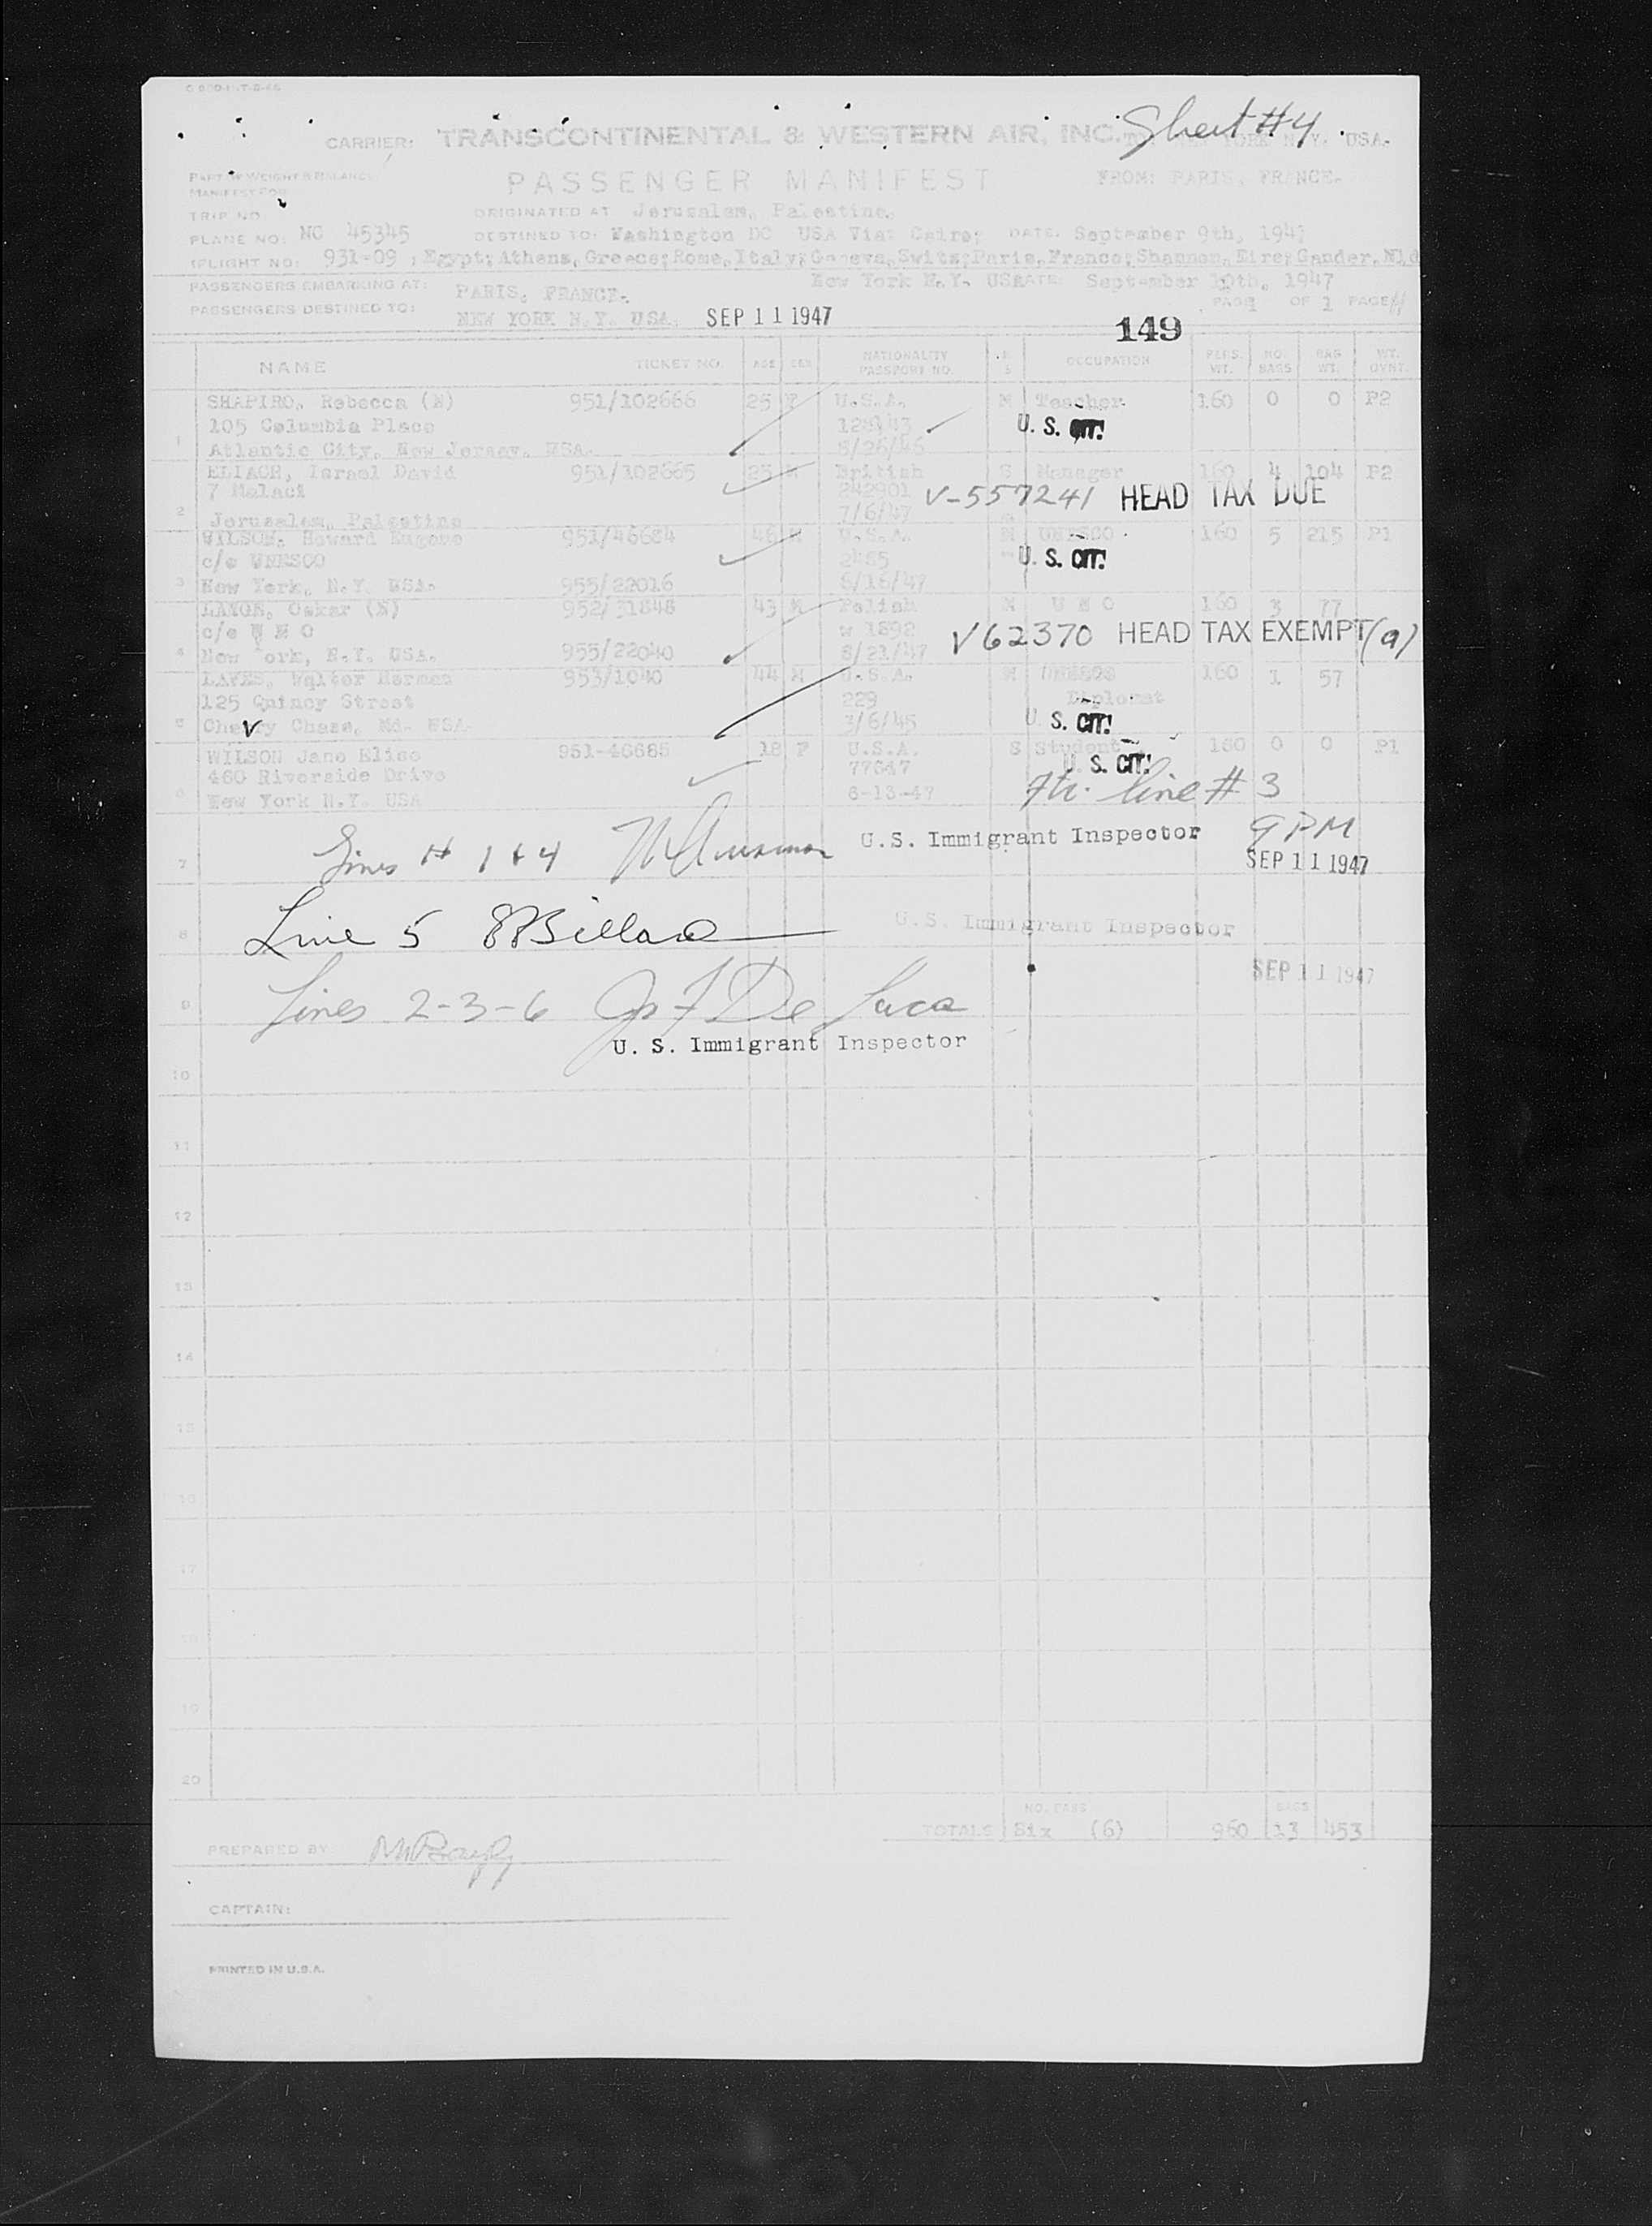 Sheet #4
CARRIER: TRANSCONTINENTAL & WESTERN AIR, INC. TO: NEW YORK N.Y. USA.
PART OF WEIGHT & BALANCE
MANIFEST FOR
PASSENGER MANIFEST FROM: PARIS, FRANCE.
TRIP NO. ORIGINATED AT Jerusalem, Palestine.
PLANE NO: NC 45345 DESTINED TO: Washington DC USA Via: Cairo; DATE. September 9th, 1947
FLIGHT NO: 931-09 ; Egypt; Athens, Greece; Rome, Italy; Geneva, Switz; Paris, France; Shannon, Eire; Gander, Nld
New York N.Y. USA DATE: September 10th, 1947
PASSENGERS EMBARKING AT: PARIS, FRANCE.
PAGE 1 OF 1 PAGE
PASSENGERS DESTINED TO: NEW YORK N.Y. USA. SEP 11 1947
149
NAME TICKET NO. AGE SEX NATIONALITY PASSPORT NO. M S OCCUPATION PERS. WT. NO. BAGS BAG WT. WT. OVNT.
SHAPIRO, Rebecca (N) 951/102666 25 F U.S.A. M Teacher 160 0 0 P2
105 Columbia Place U. S. CIT!
1 Atlantic City, New Jersey, USA. 8/26/46
ELIACH, Israel David 951/102665 23 M British S Manager 160 4 104 P2
7 Malaci 242901 V-557241 HEAD TAX DUE
2 Jerusalem, Palestine 7/6/47
WILSON, Howard Eugene 951/46684 46 M U.S.A. M UNESCO 160 5 215 P1
c/o UNESCO 2485 U. S. CIT!
3 New York, N.Y. USA. 955/22016 6/16/47
LANGE, Oskar (N) 952/31848 43 M Polish M U N O 160 3 77
c/o U N O w 1892 V62370 HEAD TAX EXEMPT (a)
4 New York, N.Y. USA. 955/22040 8/21/47
LAVES, Walter Herman 953/1040 44 M U.S.A. M UNESCO 160 1 57
125 Quincy Street 229 Diplomat
5 Chevy Chase, Md. USA 3/6/45 U. S. CIT!
WILSON Jane Elise 951-46685 18 F U.S.A. S Student 160 0 0 P1
460 Riverside Drive 77647 U. S. CIT!
6 New York N.Y. USA 6-13-47 line # 3
7 Lines # 1 & 4 U.S. Immigrant Inspector 9 PM
SEP 11 1947
8 Line 5 U.S. Immigrant Inspector
SEP 11 1947
9 Lines 2-3-6 Jos F De Luca
U. S. Immigrant Inspector
10
11
12
13
14
15
16
17
18
19
20
NO. PASS BAGS
TOTALS Six (6) 960 13 453
PREPARED BY
CAPTAIN:
PRINTED IN U.S.A.